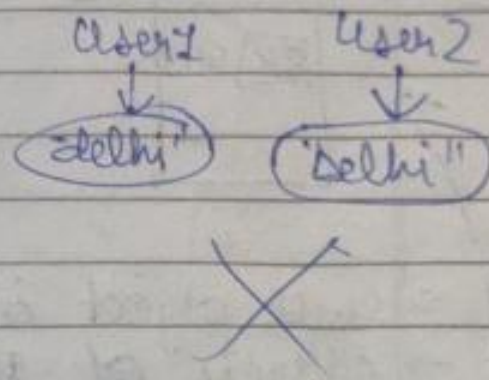 User1 User2
"delhi" "Delhi"